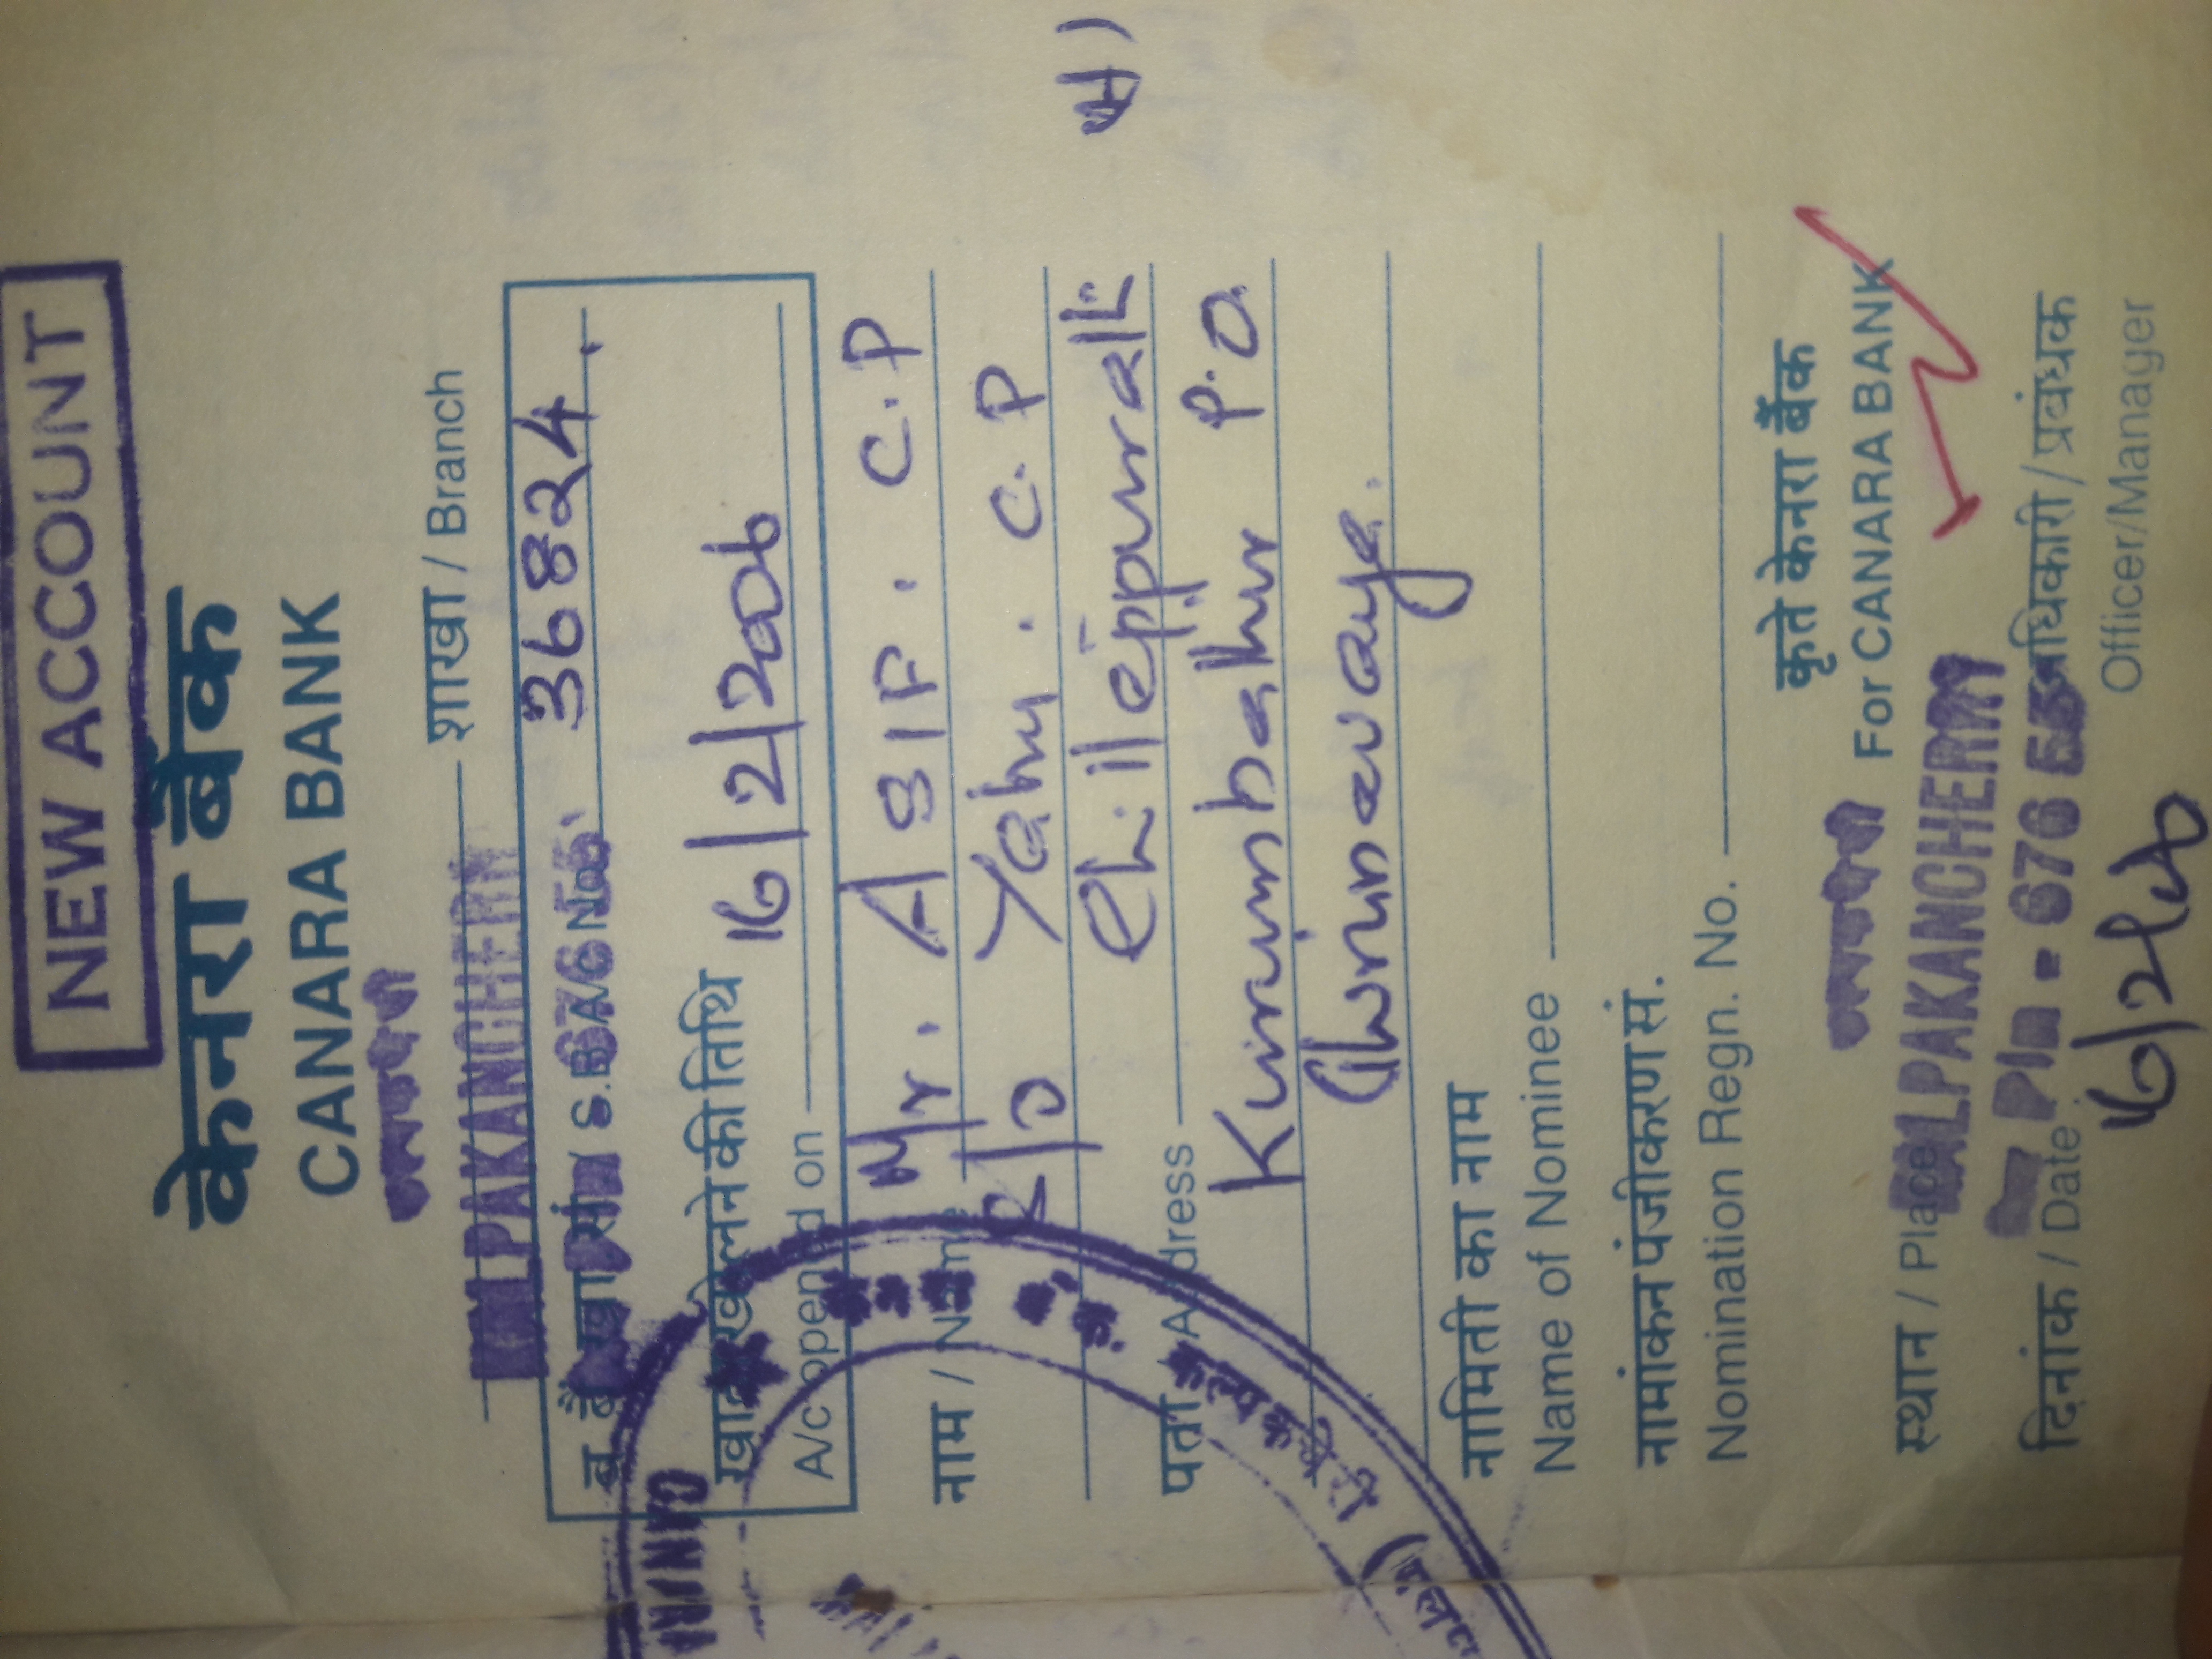 NEW ACCOUNT
केनरा बैंक
CANARA BANK
KALPAKANCHERRY
शाखा / Branch
ब बैं खा सं. / S.B. A/c No. 36824.
खाता खोलने की तिथि 16/2/2006
A/c opened on
नाम / Name Mr. ASIF. C.P
S/O Yahu. C.P
पता / Address
P.O
Thirunavaya.
नामिती का नाम
Name of Nominee
नामांकन पंजीकरण सं.
Nomination Regn. No.
कृते केनरा बैंक
For CANARA BANK
स्थान / Place KALPAKANCHERRY
Pin - 676 55
दिनांक / Date 16/2/06
अधिकारी / प्रबंधक
Officer/Manager